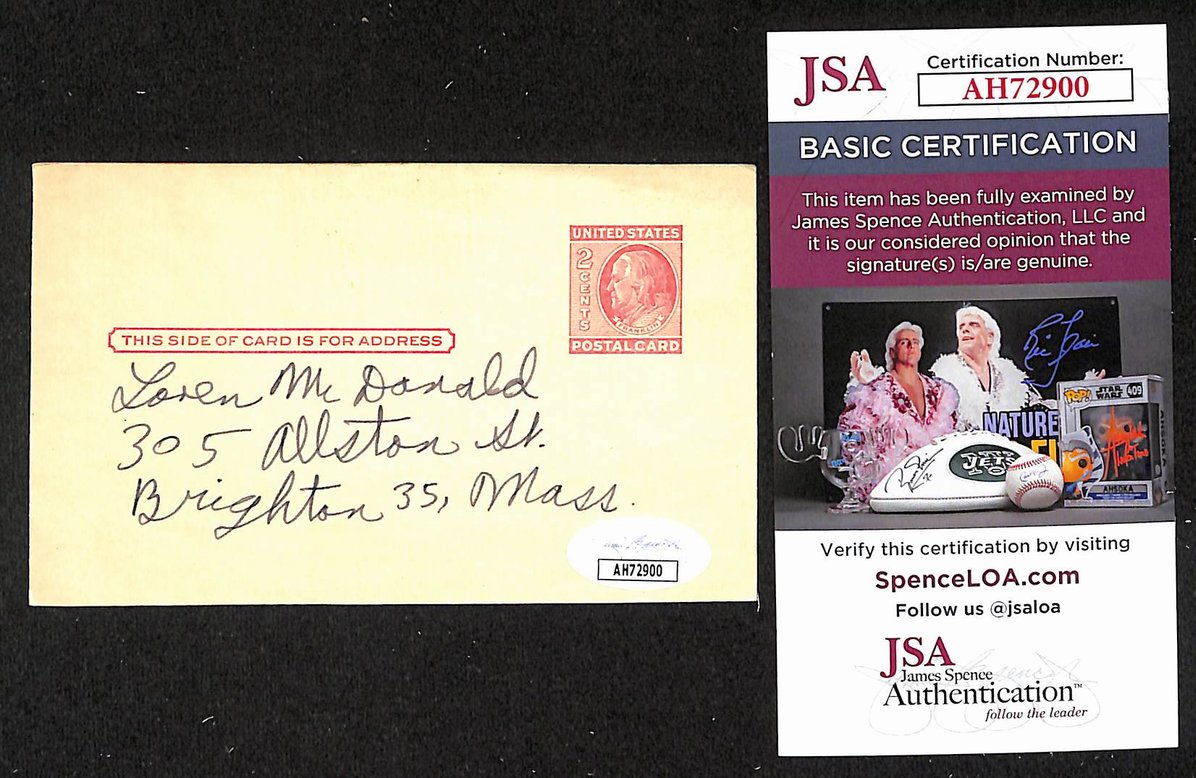 UNITED STATES
2 CENTS
FRANKLIN
POSTAL CARD
THIS SIDE OF CARD IS FOR ADDRESS
Loren McDonald
305 Allston St.
Brighton 35, Mass.
AH72900
JSA
Certification Number:
AH72900
BASIC CERTIFICATION
This item has been fully examined by
James Spence Authentication, LLC and
it is our considered opinion that the
signature(s) is/are genuine.
Ric Flair
NATURE
POP!
STAR
WARS
409
JETS
AHSOKA
Verify this certification by visiting
SpenceLOA.com
Follow us @jsaloa
JSA
James Spence
Authentication™
follow the leader